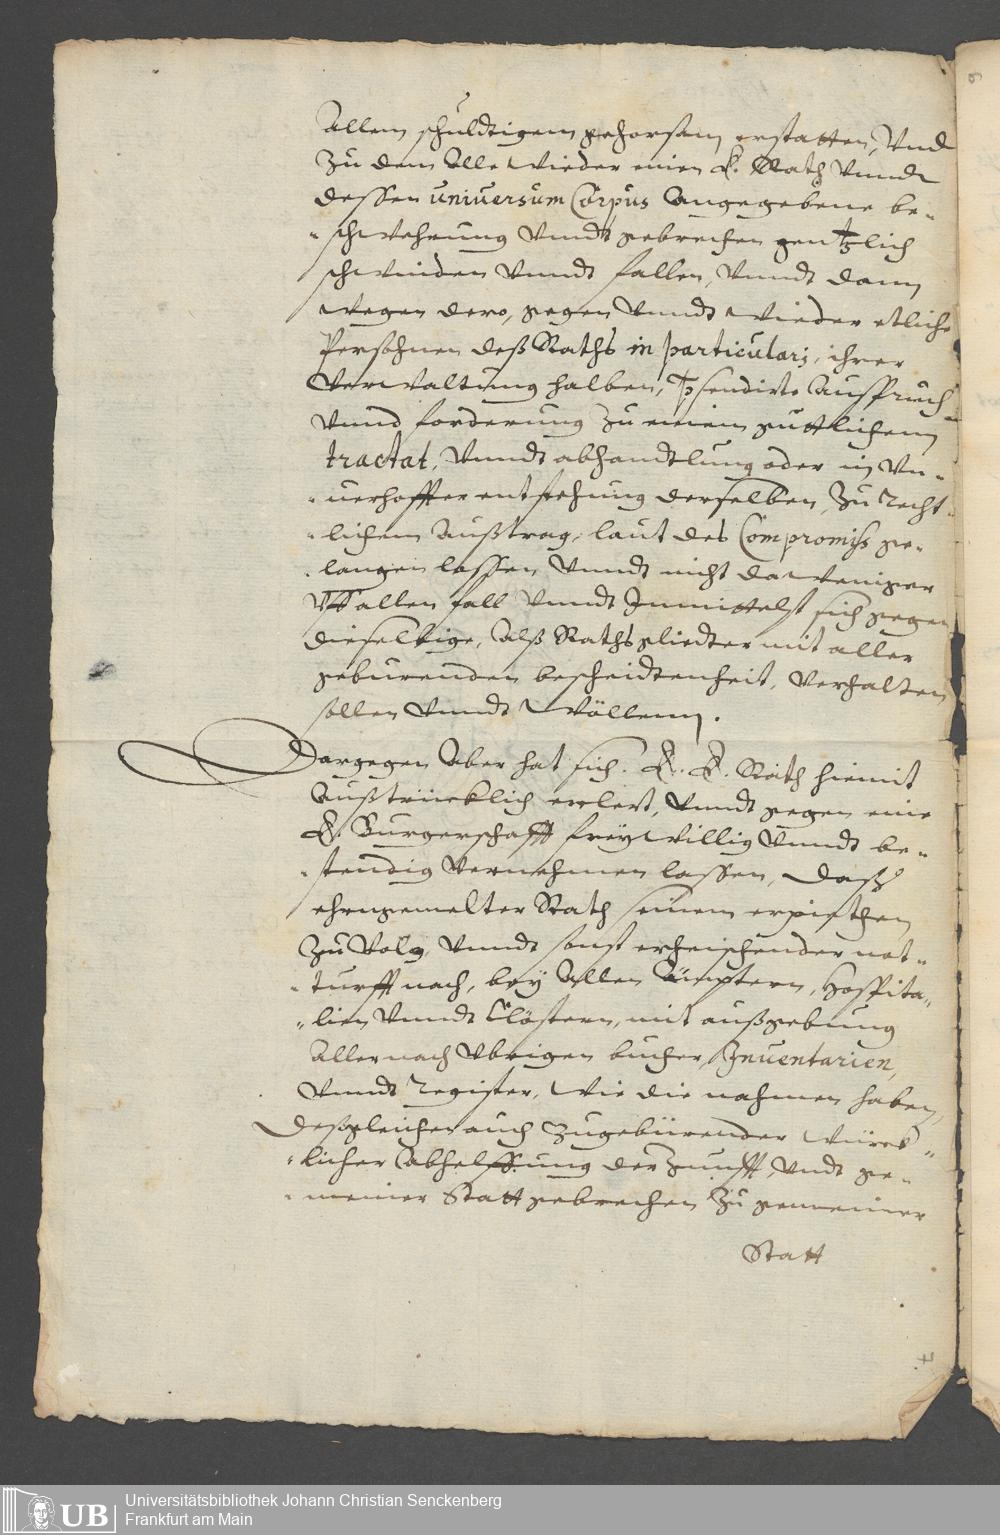 Allem schuldtigem gehorsam erstatten, Vnd
Zu dem Alle wieder einen E. Rath Vnndt
dessen universum Corpus Angegebene be-
-schwehrung Vnndt gebrechen gentzlich
schwinden Vnndt fallen, Vnndt dann
wegen dero, gegen Vnndt wieder etliche
Persohnen deß Raths in particulari, ihrer
Verwaltung halben, Anspruch
Vnnd forderung Zu einem guttlichem
tractat, Vnndt abhandtlung oder in Vn-
-uerhoffter entstehung derselben, Zu Recht-
-lichem Außtrag, laut des Compromiss ge-
-langen lassen Vnndt nicht da weniger
Vff allen fall Vnndt Inmittelst sich gegen
dieselbige, Alß Rathsgliedter mit aller
geburenden bescheidtenheit, Verhalten
sollen Vnndt Wöllenn.
Dargegen Aber hat sich. E. E. Rath hiemit
Außtrücklich erclert, Vnndt gegen eine
E. Burgerschafft freywillig Vnndt be-
-stendig Vernehmen lassen, Daß
ehrngemelter Rath seinem erpiethen
Zu Volg, Vnndt sonst erheischender not-
-turfft nach, bey Allen Ämptern, Hospita-
-lien Vnndt Clöstern, mit außgebung
Aller nach Vbrigen bucher, Inuentarien,
Vnndt Register, Wie die nahmen haben,
Deßgleichen auch Zugebürender würck-
-licher Abhelffung der Zunfft, Vndt ge-
-meiner Statt gebrechen Zu gemeiner
Statt
Universitätsbibliothek Johann Christian Senckenberg
Frankfurt am Main
UB